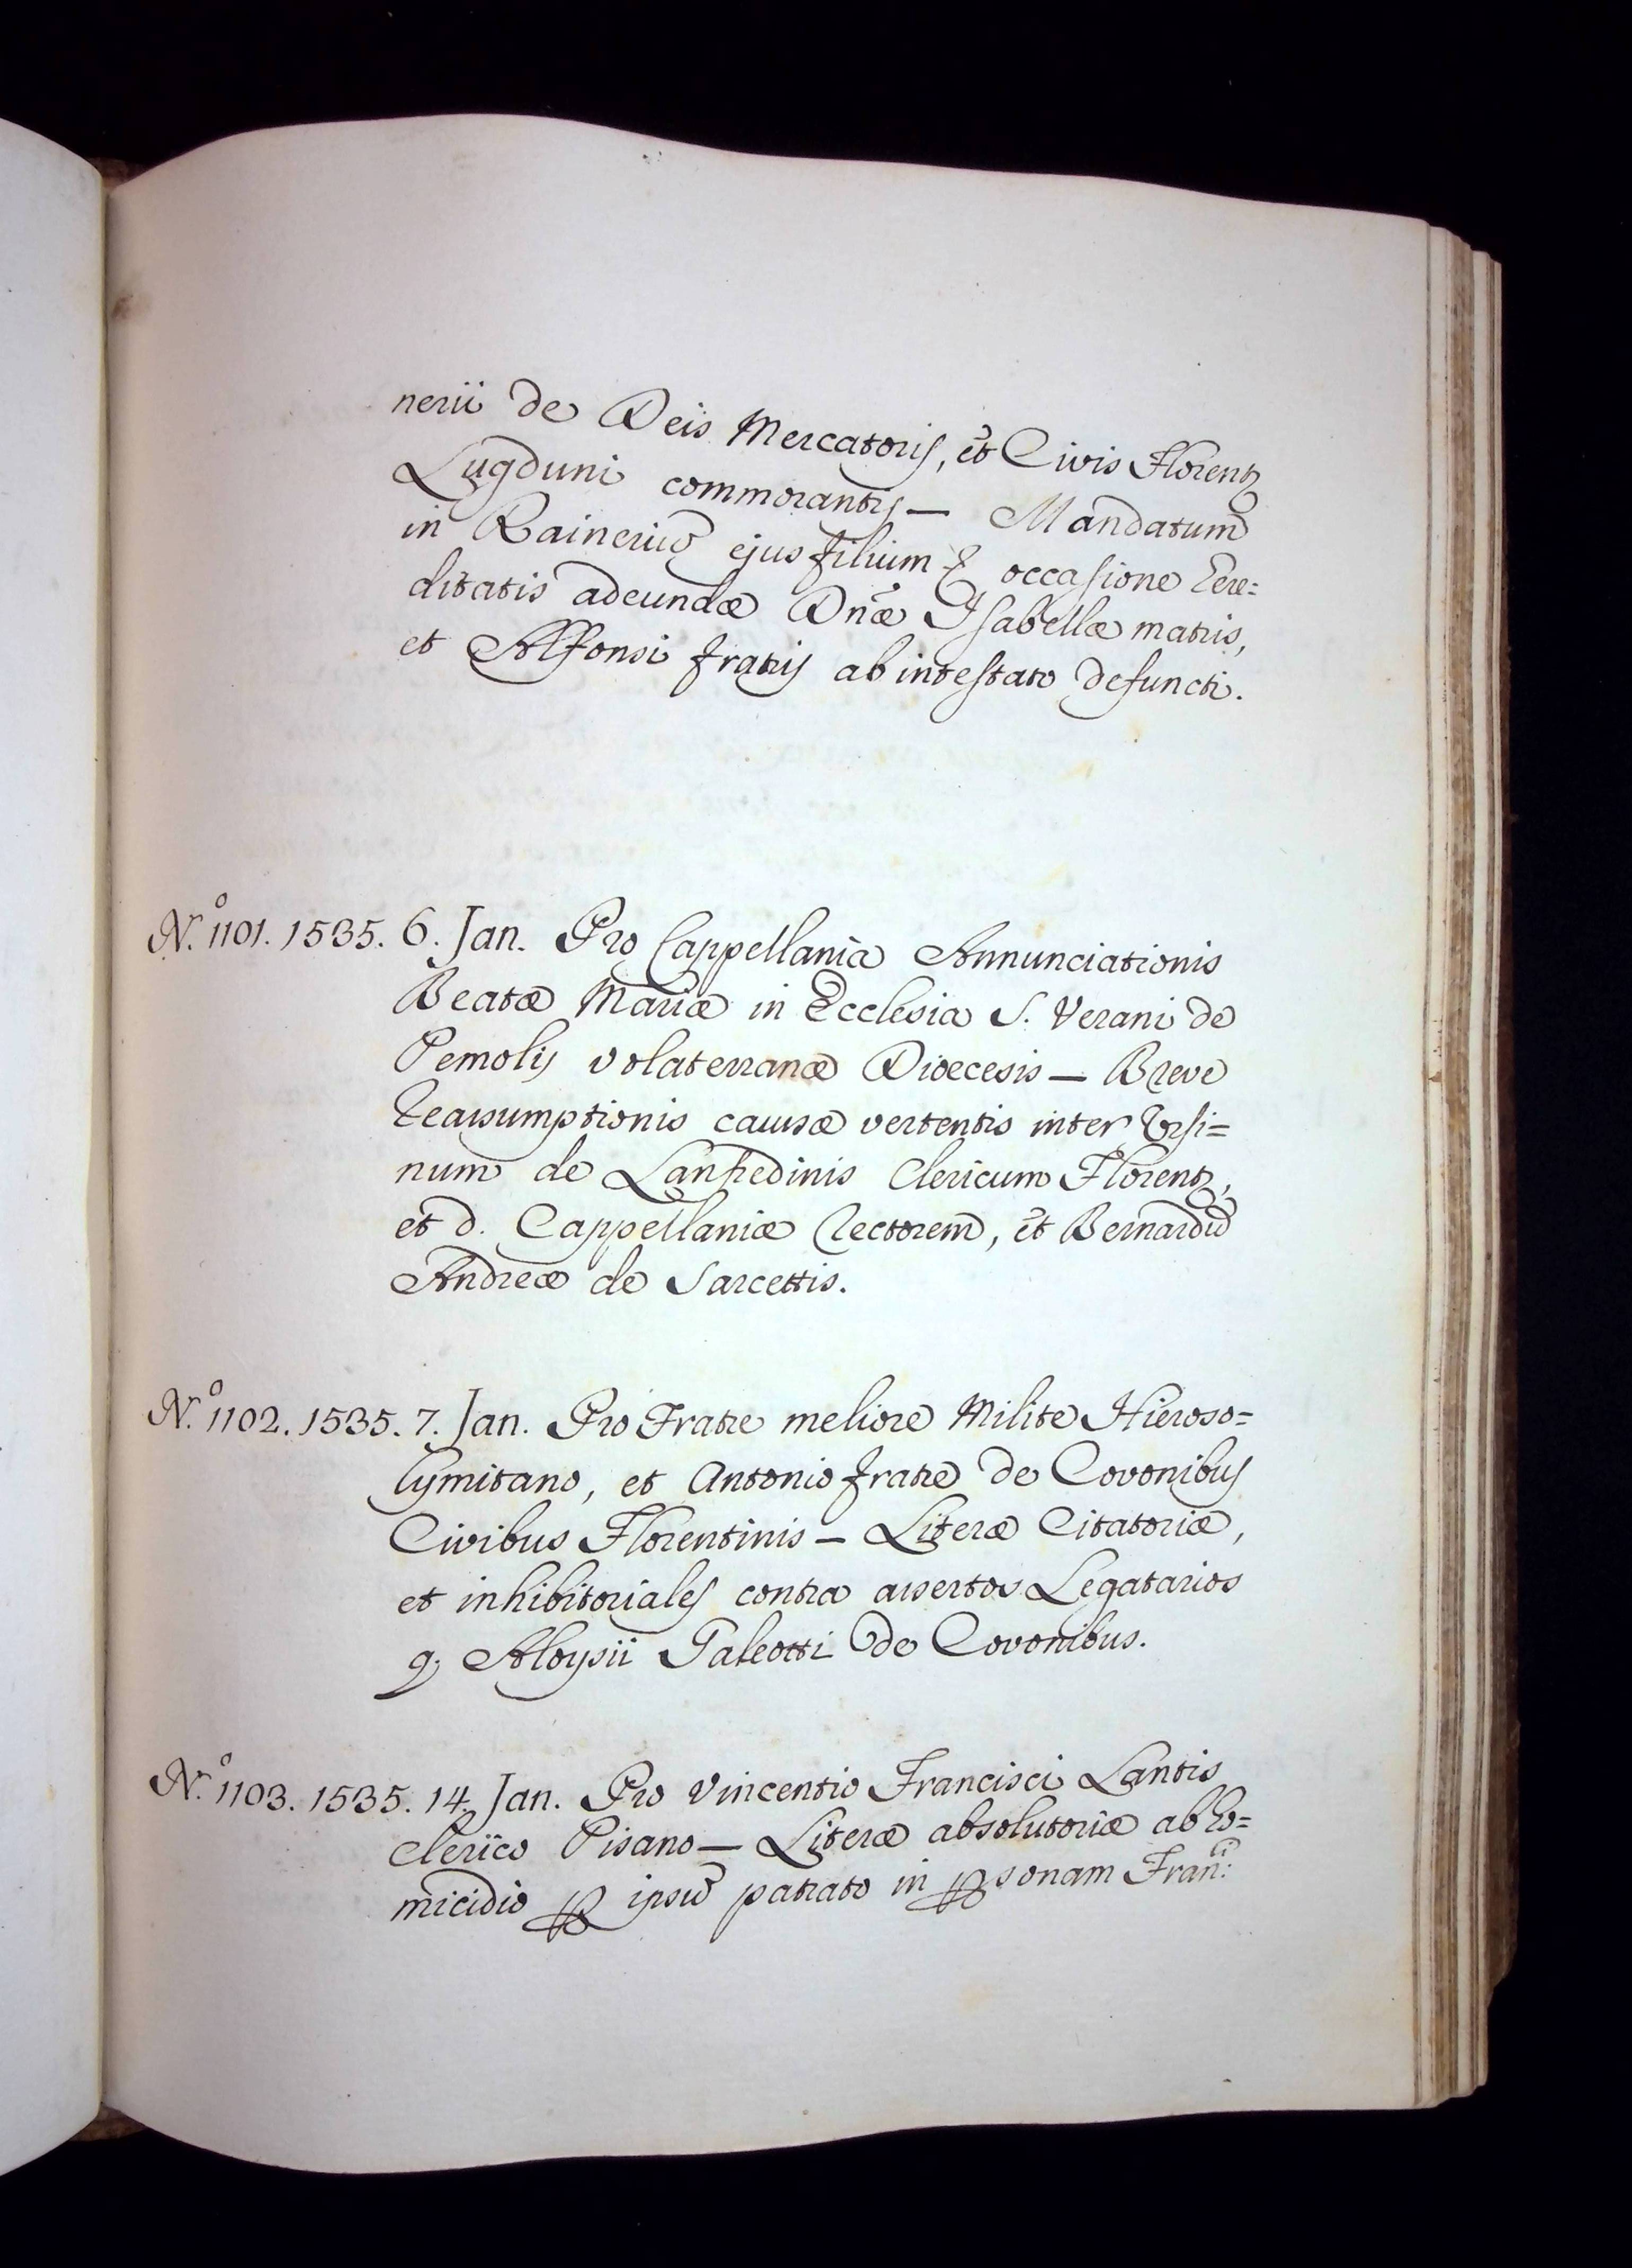 nerii de Deis Mercatoris, et Civis Florentz
Lugduni commorantis — Mandatum
in Rainerium ejus filium & occasione here=
ditatis adeundæ Dnæ Isabellæ matris,
et Alfonsi fratris ab intestato defuncti.
N.º 1101. 1535. 6. Jan. Pro Cappellania Annunciationis
Beatæ Mariæ in Ecclesia S. Verani de
Pemolis volaterranæ Dioecesis — Breve
reassumptionis causæ vertentis inter Ursi=
num de Lanfredinis Clericum Florentz,
et d. Cappellaniæ rectorem, et Bernardū
Andreæ de Sarcettis.
N.º 1102. 1535. 7. Jan. Pro Fratre meliore Milite Hieroso=
lymitano, et Antonio fratre de Covonibus
Civibus Florentinis — Literæ Citatoriæ,
et inhibitoriales contra assertos Legatarios
q; Aloysii Galeotti de Covonibus.
N.º 1103. 1535. 14. Jan. Pro Vincentio Francisci Lantis
clerico Pisano — Literæ absolutoriæ ab ho=
micidio ꝑ ipsū patrato in ꝑsonam Fran:ci